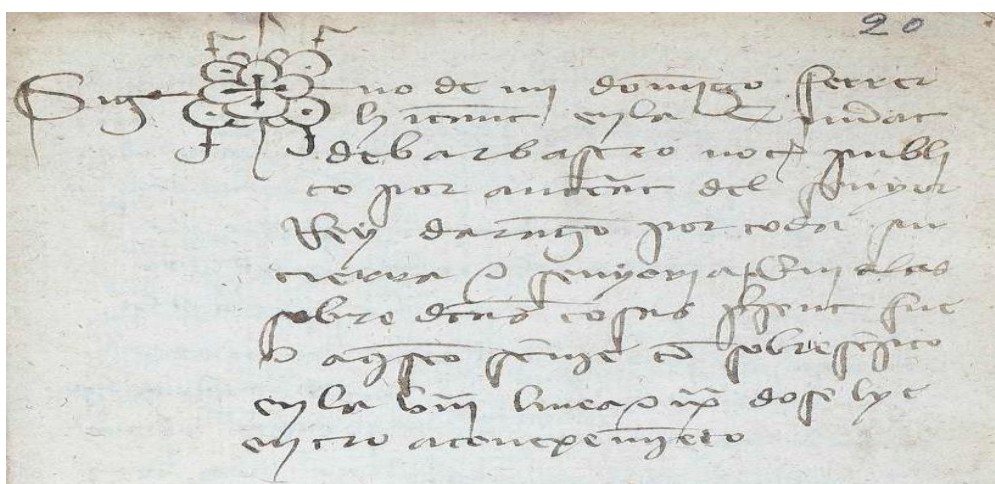 20
Sig no de mi domīgo ferrer
habitant en la Ciudat
de barbastro not publi
co por auctat del senyor
Rey darago por toda su
tierra e senyoria Qui a las
sobre dtas cosas present fue
e aquesto scriuie co sobrescripto
en la viii linea do se lye
entro